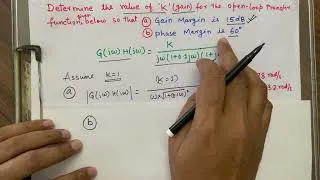 Determine the value of 'k' (gain) for the open-loop transfer
function, given below so that (a) Gain Margin is 15dB
(b) phase Margin is 60°
G(jω) H(jω) = K
jω(1+0.1jω)(1+j
Assume K=1
|G(jω) H(jω)| = (K=1)
ω×√1+
rad/s
3.2 rad/s
(b)